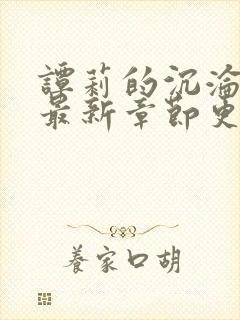 譚莉的沉淪
最新章節更
養家口胡